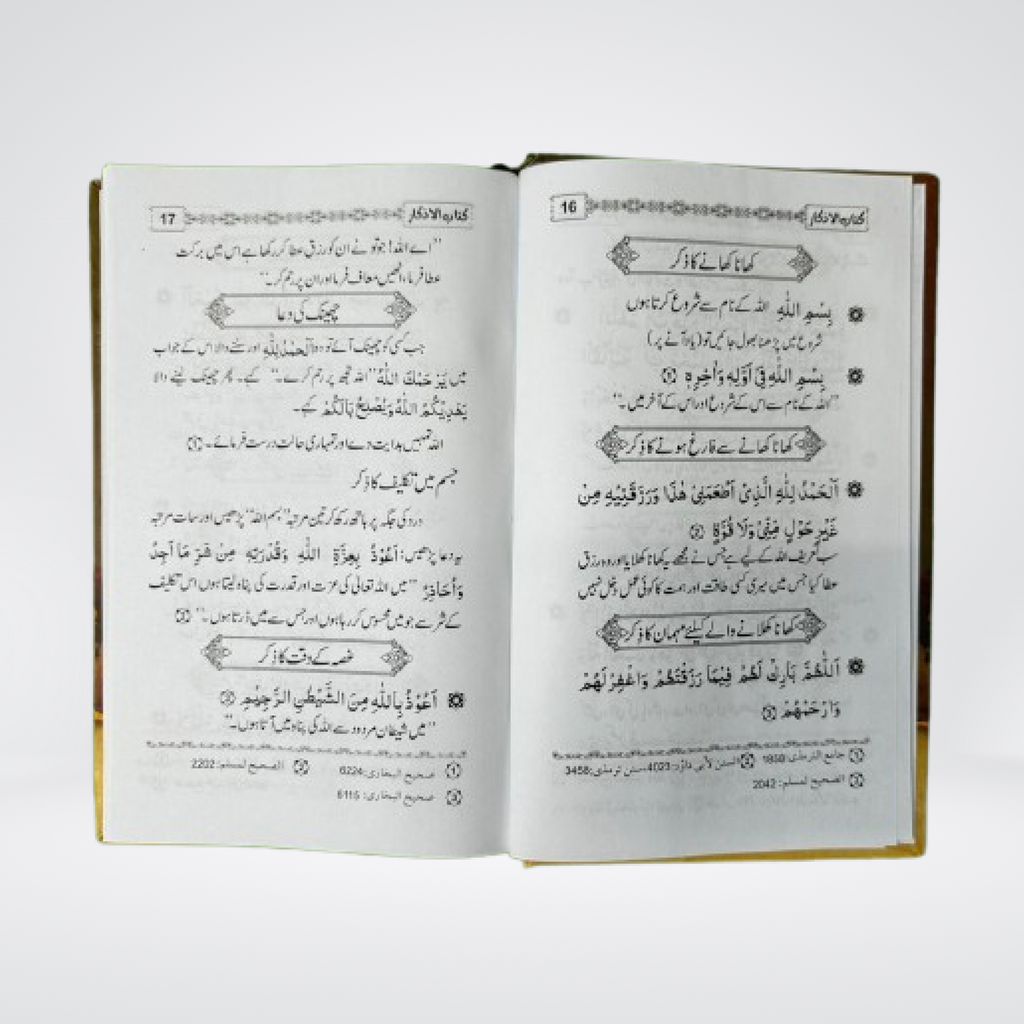 كتاب الاذكار 16
کھانا کھانے کا ذکر
بِسْمِ اللّٰهِ اللہ کے نام سے شروع کرتا ہوں
شروع میں پڑھنا بھول جائیں تو (یاد آنے پر)
بِسْمِ اللّٰهِ فِيْ اَوَّلِهٖ وَاٰخِرِهٖ ①
”اللہ کے نام سے اس کے شروع اور اس کے آخر میں۔“
کھانا کھانے سے فارغ ہونے کا ذکر
اَلْحَمْدُ لِلّٰهِ الَّذِيْ اَطْعَمَنِيْ هٰذَا وَرَزَقَنِيْهِ مِنْ
غَيْرِ حَوْلٍ مِّنِّيْ وَلَا قُوَّةٍ ②
سب تعریف اللہ کے لیے ہے جس نے مجھے یہ کھانا کھلایا اور وہ رزق
عطا کیا جس میں میری کسی طاقت اور ہمت کا کوئی عمل دخل نہیں
کھانا کھلانے والے کیلئے مہمان کا ذکر
اَللّٰهُمَّ بَارِكْ لَهُمْ فِيْمَا رَزَقْتَهُمْ وَاغْفِرْ لَهُمْ
وَارْحَمْهُمْ ③
① جامع الترمذي: 1858 ② السنن لأبي داؤد: 4023، سنن ترمذي: 3458
③ الصحيح لمسلم: 2042
كتاب الاذكار 17
”اے اللہ! جو تُو نے ان کو رزق عطا کر رکھا ہے اس میں برکت
عطا فرما، انھیں معاف فرما اور ان پر رحم کر۔“
چھینک کی دعا
جب کسی کو چھینک آئے تو وہ اَلْحَمْدُ لِلّٰهِ اور سننے والا اس کے جواب
میں يَرْحَمُكَ اللّٰهُ ”اللہ تجھ پر رحم کرے۔“ کہے۔ پھر چھینک لینے والا
يَهْدِيْكُمُ اللّٰهُ وَيُصْلِحُ بَالَكُمْ کہے۔
اللہ تمہیں ہدایت دے اور تمہاری حالت درست فرمائے۔ ①
جسم میں تکلیف کا ذکر
درد کی جگہ پر ہاتھ رکھ کر تین مرتبہ ”بسم اللہ“ پڑھیں اور سات مرتبہ
یہ دعا پڑھیں: اَعُوْذُ بِعِزَّةِ اللّٰهِ وَقُدْرَتِهٖ مِنْ شَرِّ مَا اَجِدُ
وَاُحَاذِرُ ”میں اللہ تعالیٰ کی عزت اور قدرت کی پناہ لیتا ہوں اس تکلیف
کے شر سے جو میں محسوس کر رہا ہوں اور جس سے میں ڈرتا ہوں۔“ ②
غصہ کے وقت کا ذکر
اَعُوْذُ بِاللّٰهِ مِنَ الشَّيْطٰنِ الرَّجِيْمِ ③
”میں شیطان مردود سے اللہ کی پناہ میں آتا ہوں۔“
① صحيح البخاري: 6224 ② الصحيح لمسلم: 2202
③ صحيح البخاري: 6115